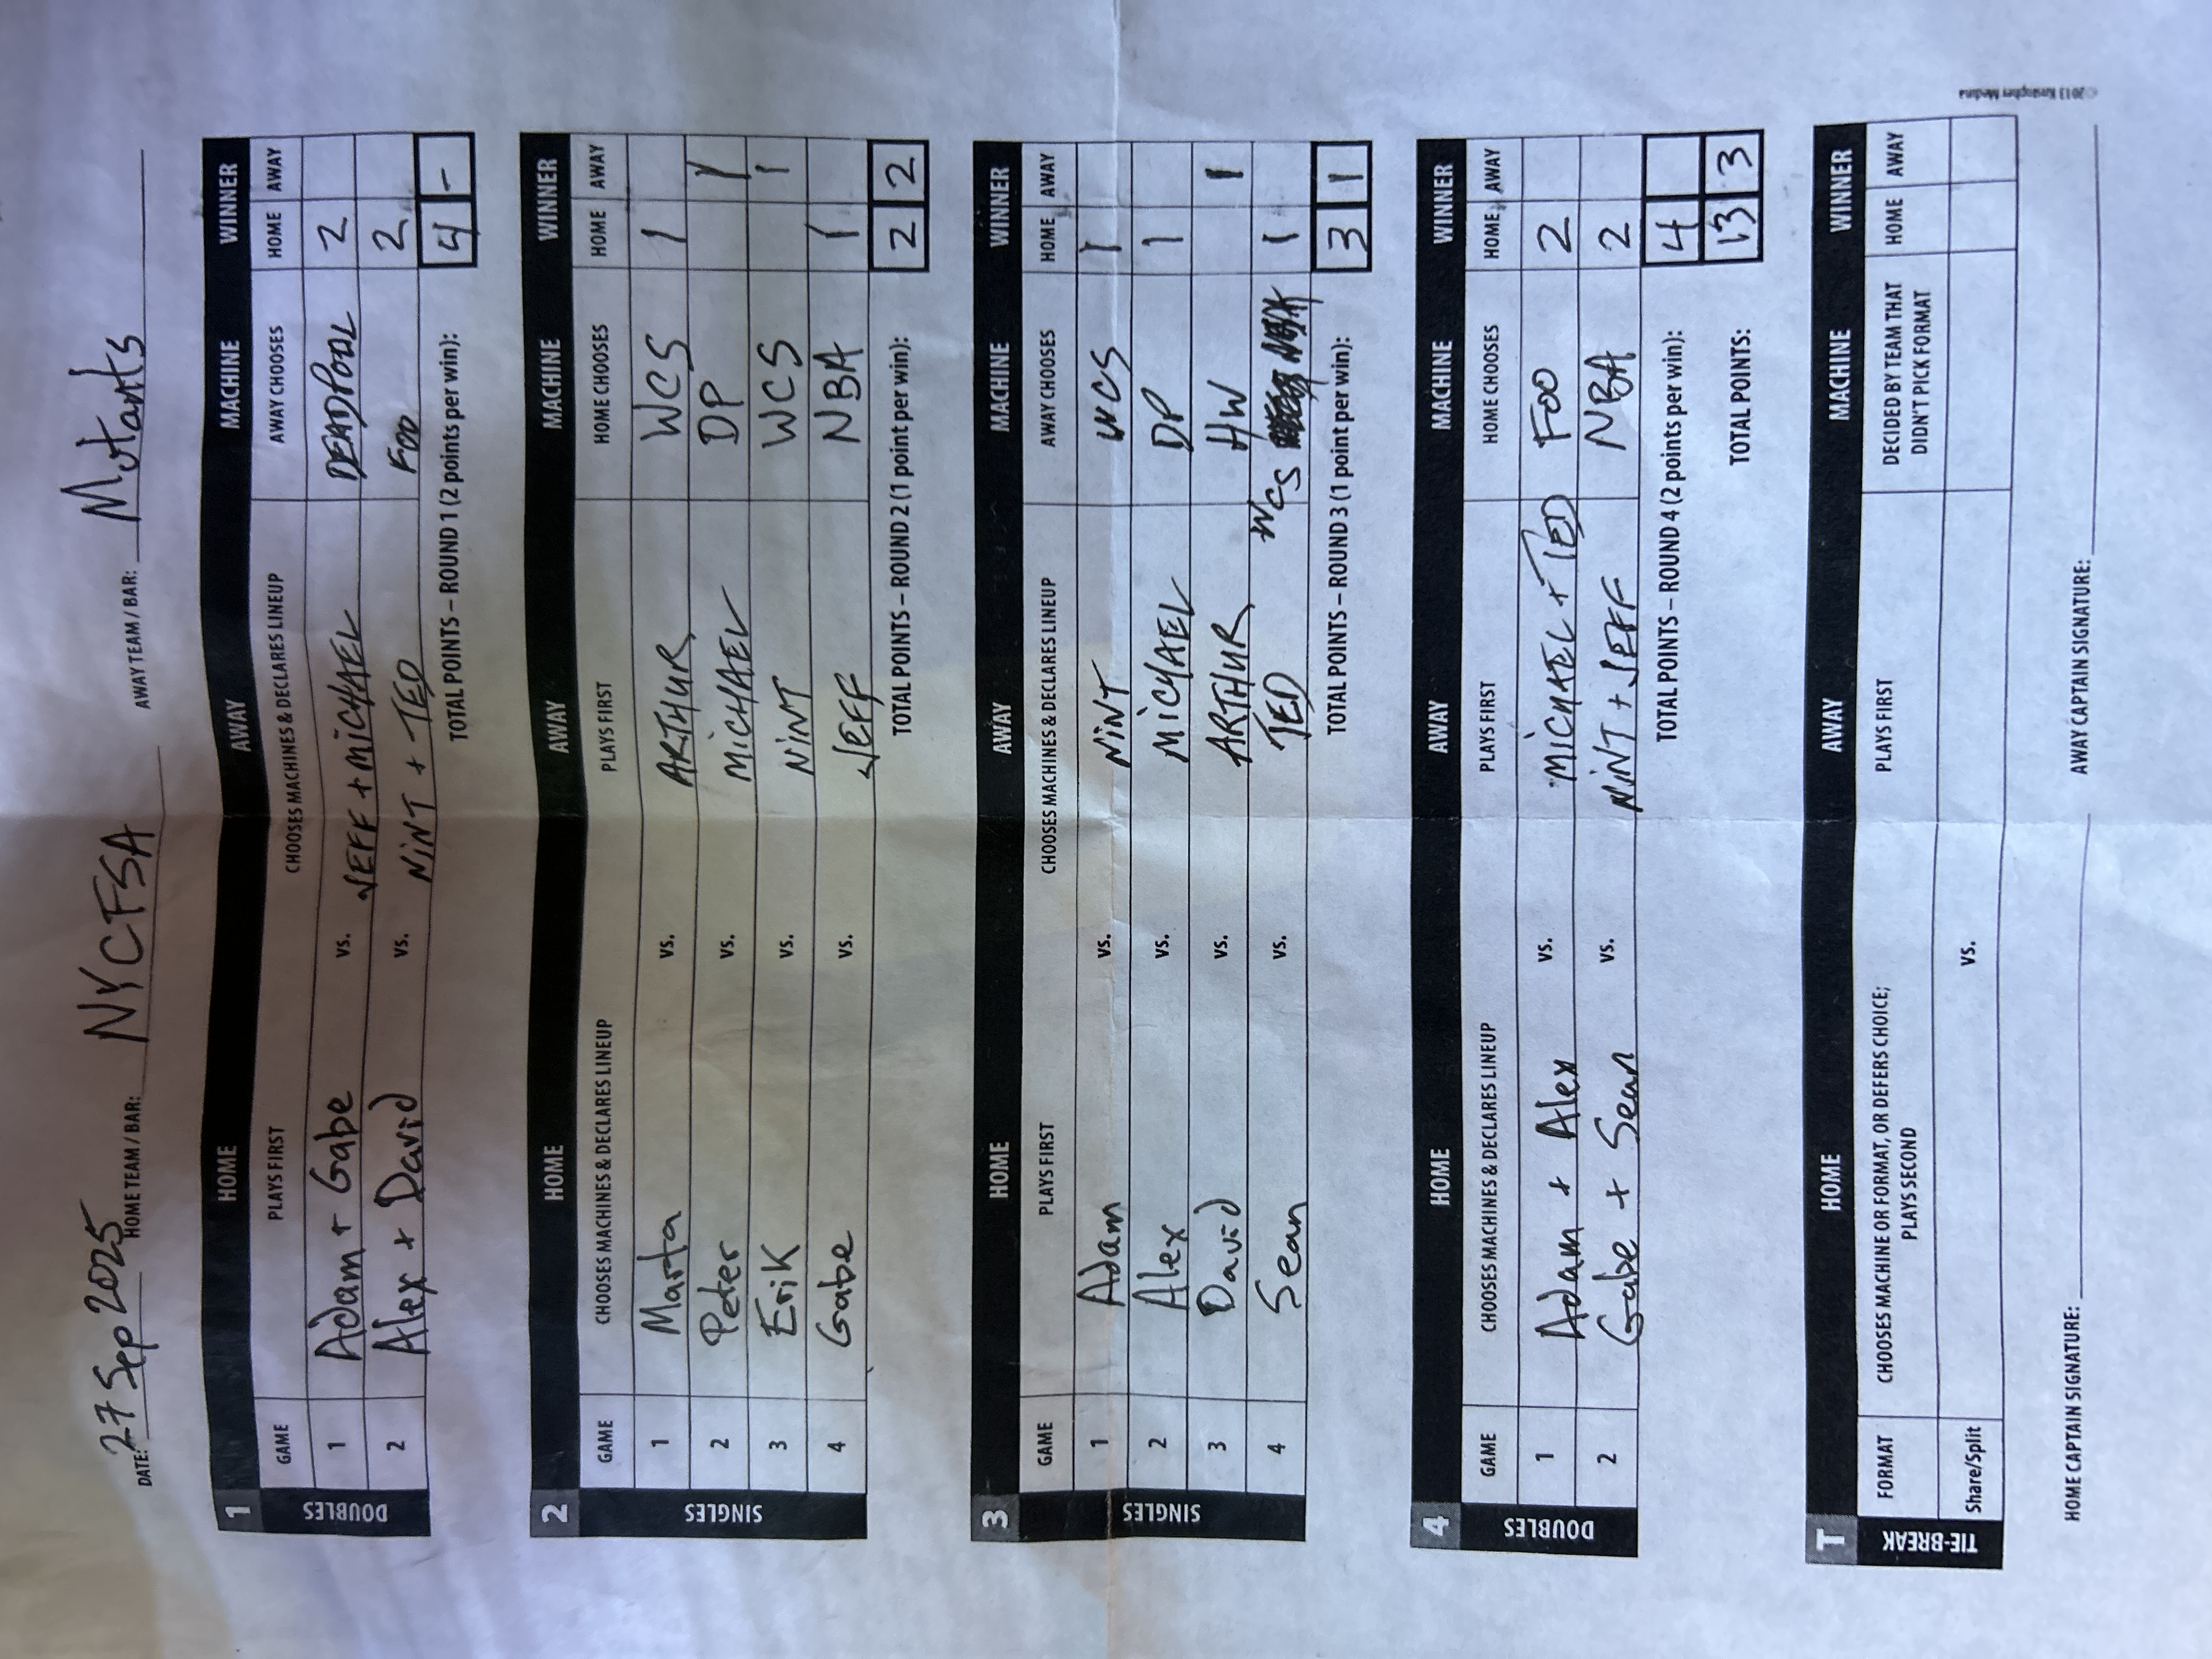 DATE: 27 Sep 2025 HOME TEAM / BAR: NYCFSA AWAY TEAM / BAR: Mutants
1 HOME AWAY MACHINE WINNER
GAME PLAYS FIRST CHOOSES MACHINES & DECLARES LINEUP AWAY CHOOSES HOME AWAY
DOUBLES
1 Adam + Gabe vs. JEFF + MiCHAEL DEADPOOL 2
2 Alex + David vs. NiNT + TED FOO 2
TOTAL POINTS – ROUND 1 (2 points per win): 4 -
2 HOME AWAY MACHINE WINNER
GAME CHOOSES MACHINES & DECLARES LINEUP PLAYS FIRST HOME CHOOSES HOME AWAY
SINGLES
1 Marta vs. ARTHUR WCS 1
2 Peter vs. MiCHAEL DP 1
3 Erik vs. NiNT WCS 1
4 Gabe vs. JEFF NBA 1
TOTAL POINTS – ROUND 2 (1 point per win): 2 2
3 HOME AWAY MACHINE WINNER
GAME PLAYS FIRST CHOOSES MACHINES & DECLARES LINEUP AWAY CHOOSES HOME AWAY
SINGLES
1 Adam vs. NiNT WCS 1
2 Alex vs. MiCHAEL DP 1
3 David vs. ARTHUR HW 1
4 Sean vs. TED WCS 1
TOTAL POINTS – ROUND 3 (1 point per win): 3 1
4 HOME AWAY MACHINE WINNER
GAME CHOOSES MACHINES & DECLARES LINEUP PLAYS FIRST HOME CHOOSES HOME AWAY
DOUBLES
1 Adam + Alex vs. MiCHAEL + TED FOO 2
2 Gabe + Sean vs. NiNT + JEFF NBA 2
TOTAL POINTS – ROUND 4 (2 points per win): 4
TOTAL POINTS: 13 3
T HOME AWAY MACHINE WINNER
FORMAT CHOOSES MACHINE OR FORMAT, OR DEFERS CHOICE; PLAYS FIRST DECIDED BY TEAM THAT HOME AWAY
PLAYS SECOND DIDN'T PICK FORMAT
TIE-BREAK
Share/Split vs.
HOME CAPTAIN SIGNATURE: AWAY CAPTAIN SIGNATURE:
©2013 Kristopher Medina